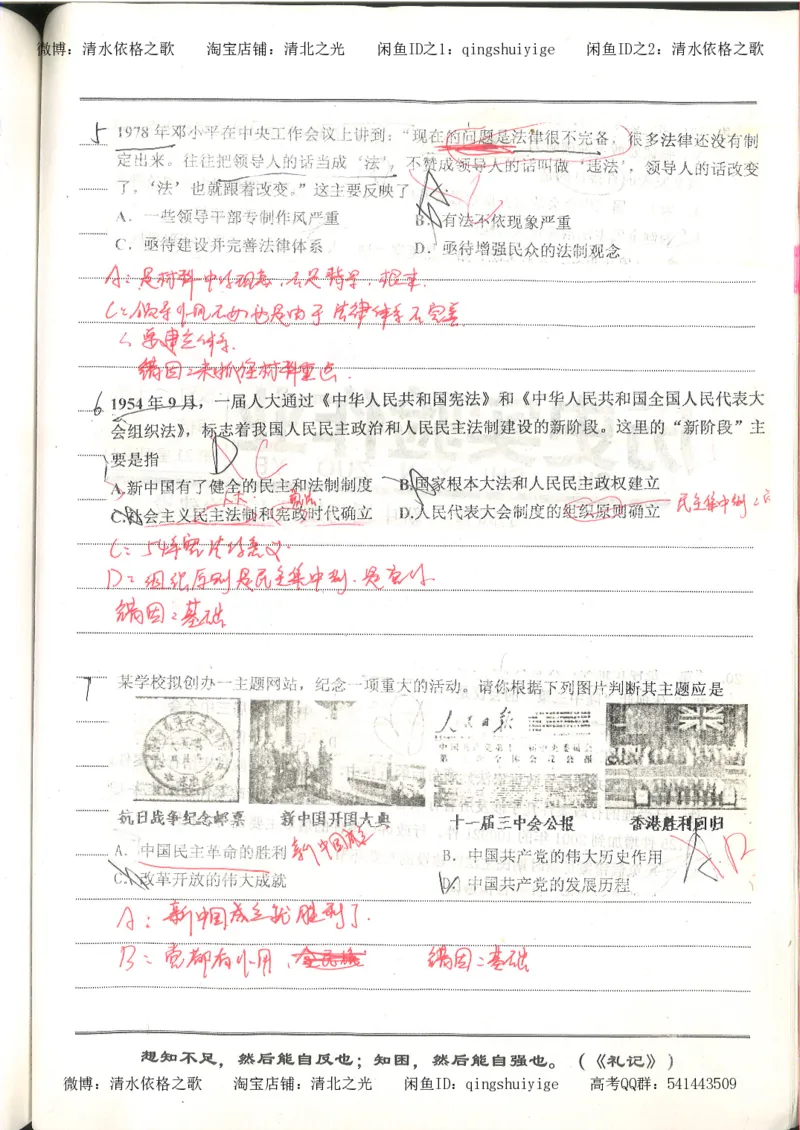 微博：清水依格之歌 淘宝店铺：清北之光 闲鱼ID之1：qingshuiyige 闲鱼ID之2：清水依格之歌
5 1978年邓小平在中央工作会议上讲到：“现在的问题是法律很不完备，很多法律还没有制
定出来。往往把领导人的话当成‘法’，不赞成领导人的话叫做‘违法’，领导人的话改变
了，‘法’也就跟着改变。”这主要反映了
A．一些领导干部专制作风严重 B．有法不依现象严重
C．亟待建设并完善法律体系 D．亟待增强民众的法制观念
A：是材料中的现象，不是背景，根本．
C：领导作风不好也是由于法律体系不完善
要建立体系．
错因：未抓住材料重点．
6 1954年9月，一届人大通过《中华人民共和国宪法》和《中华人民共和国全国人民代表大
会组织法》，标志着我国人民民主政治和人民民主法制建设的新阶段。这里的“新阶段”主
要是指 D C
A.新中国有了健全的民主和法制制度 B.国家根本大法和人民民主政权建立
人大 宪法
C.社会主义民主法制和宪政时代确立 D.人民代表大会制度的组织原则确立 民主集中制
C：54年宪法的意义
D：组织原则是民主集中制．是有的
错因：基础
7 某学校拟创办一主题网站，纪念一项重大的活动。请你根据下列图片判断其主题应是
人民日报
抗日战争纪念邮票 新中国开国大典 十一届三中会公报 香港胜利回归
A．中国民主革命的胜利 新中国成立 B．中国共产党的伟大历史作用
C．改革开放的伟大成就 D．中国共产党的发展历程
A：新中国成立就胜利了．
B：党都有作用， 错因：基础
想知不足，然后能自反也；知困，然后能自强也。（《礼记》）
微博：清水依格之歌 淘宝店铺：清北之光 闲鱼ID：qingshuiyige 高考QQ群：541443509